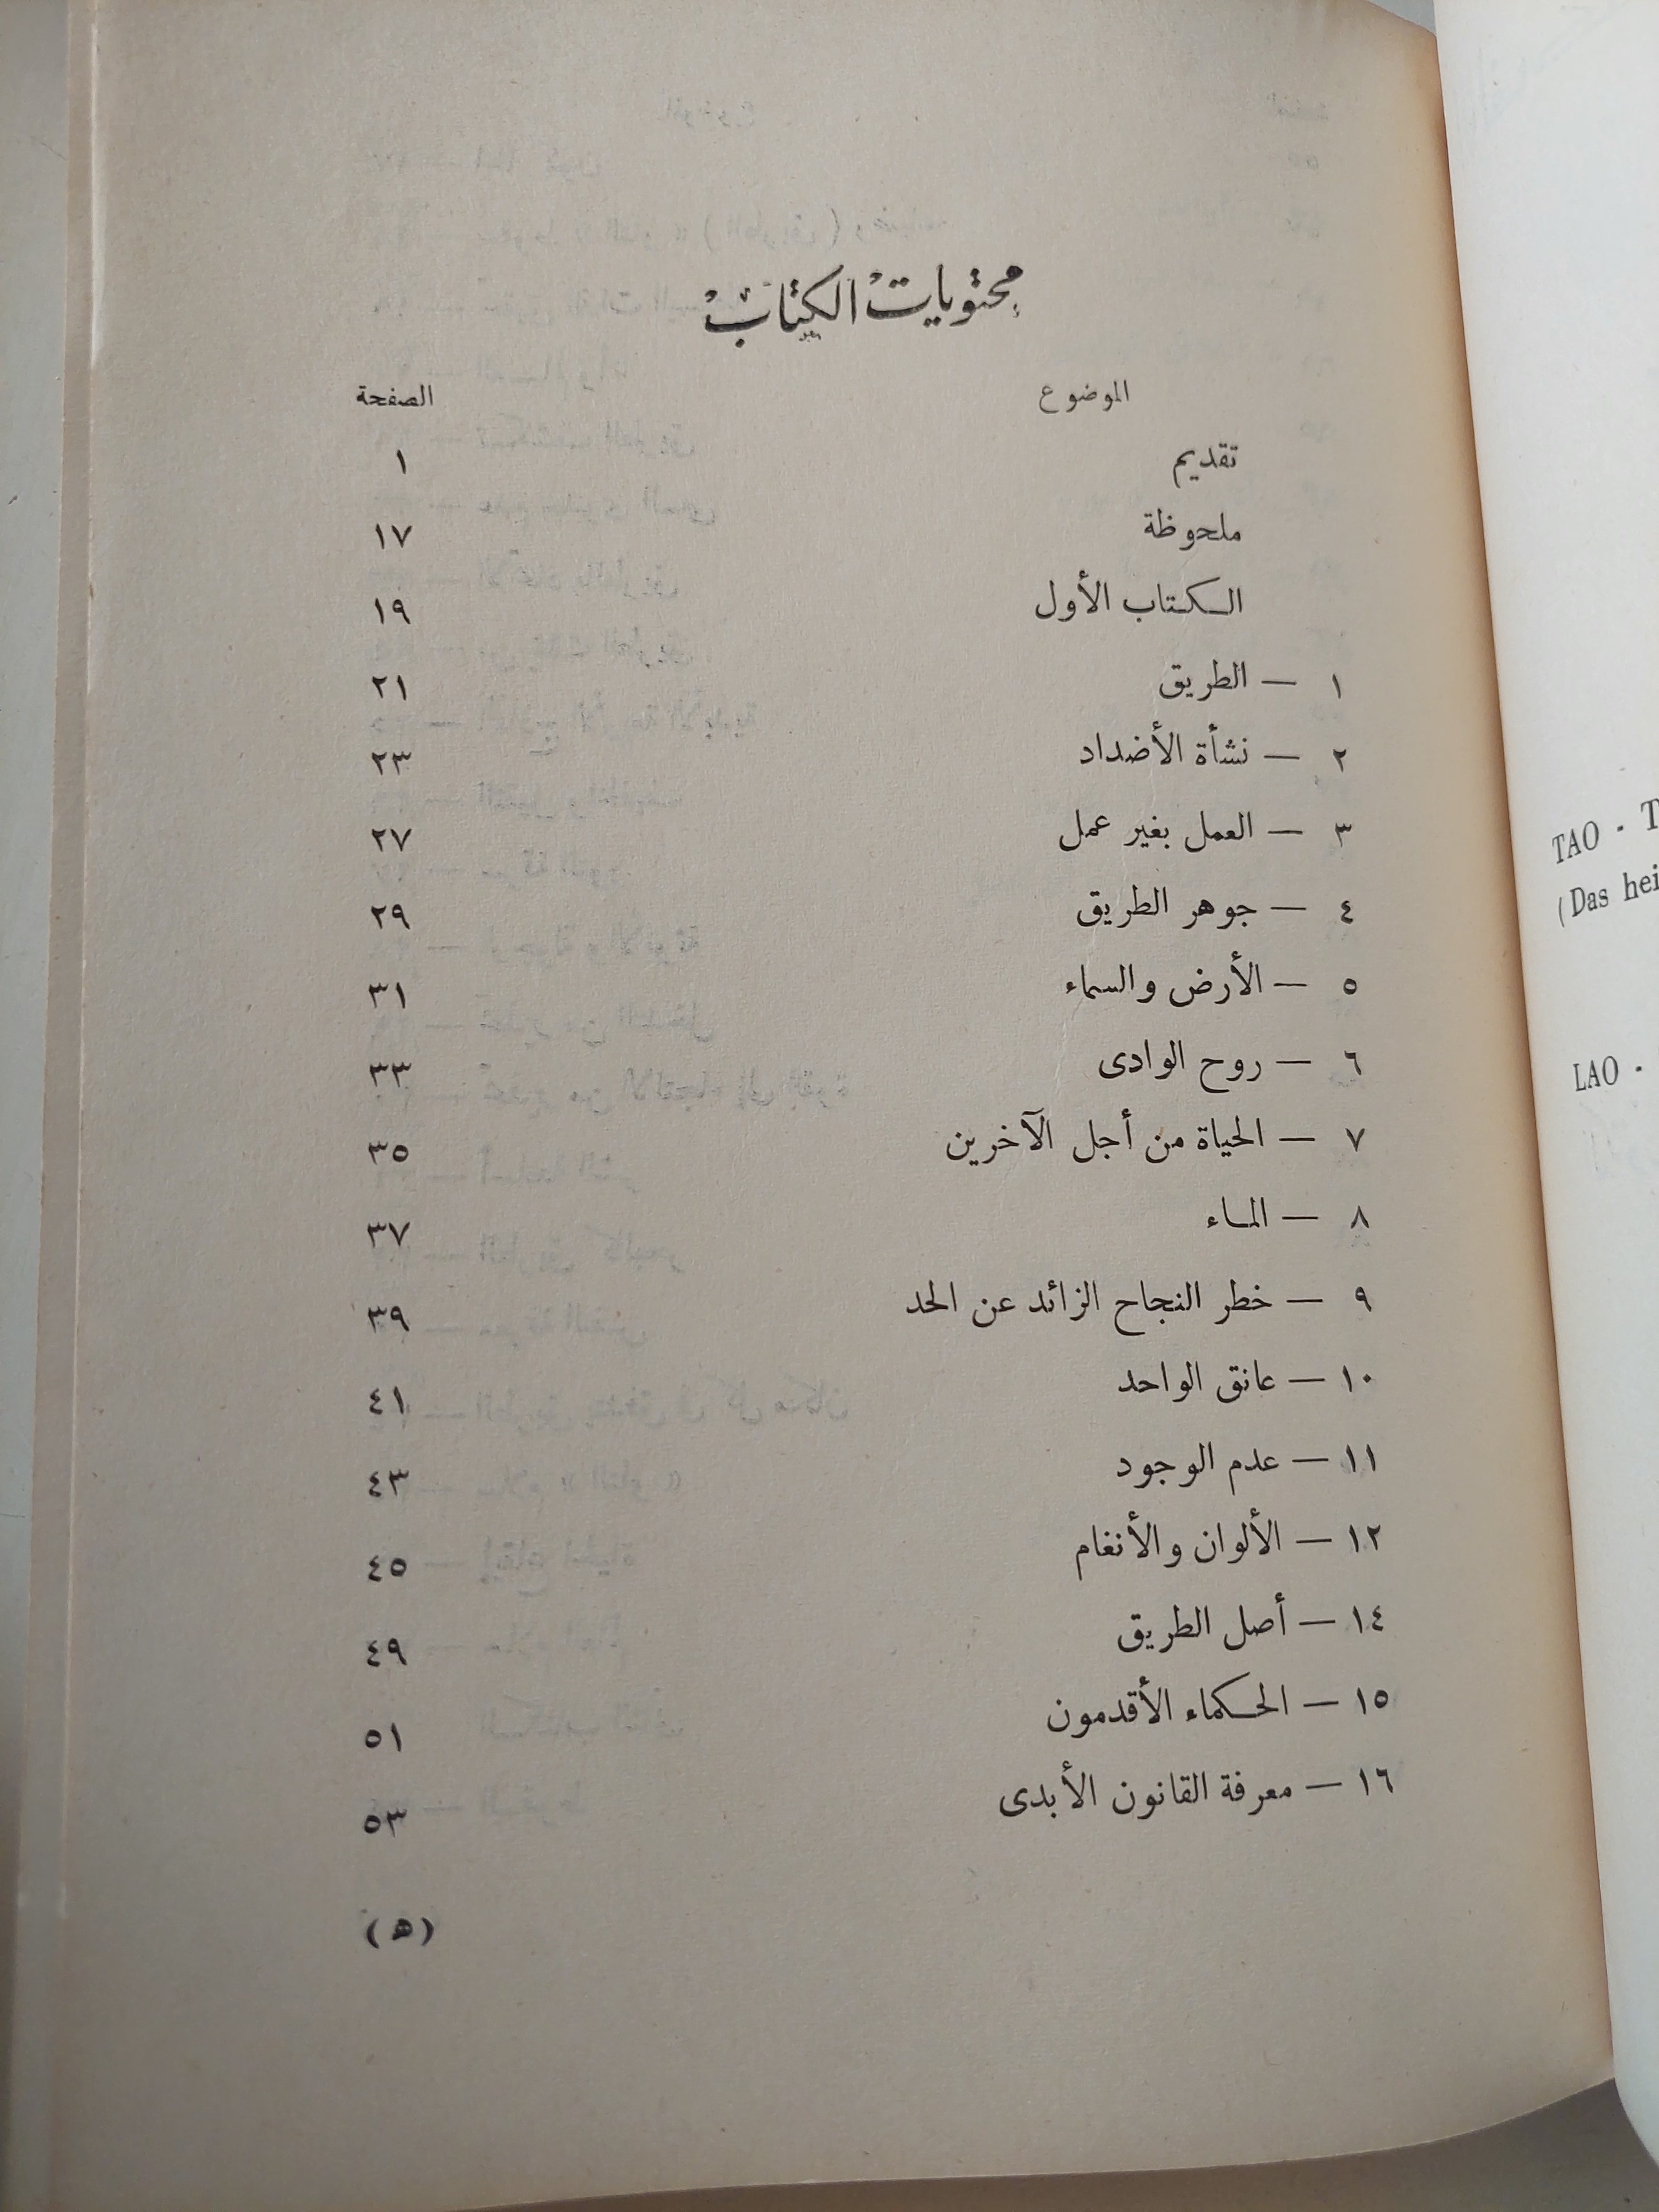 محتويات الكتاب
الموضوع الصفحة
تقديم ١
ملحوظة ١٧
الكتاب الأول ١٩
١ — الطريق ٢١
٢ — نشأة الأضداد ٢٣
٣ — العمل بغير عمل ٢٧
٤ — جوهر الطريق ٢٩
٥ — الأرض والسماء ٣١
٦ — روح الوادى ٣٣
٧ — الحياة من أجل الآخرين ٣٥
٨ — الماء ٣٧
٩ — خطر النجاح الزائد عن الحد ٣٩
١٠ — عانق الواحد ٤١
١١ — عدم الوجود ٤٣
١٢ — الألوان والأنغام ٤٥
١٤ — أصل الطريق ٤٩
١٥ — الحكماء الأقدمون ٥١
١٦ — معرفة القانون الأبدى ٥٣
(ه)
TAO - T
(Das hei
LAO -